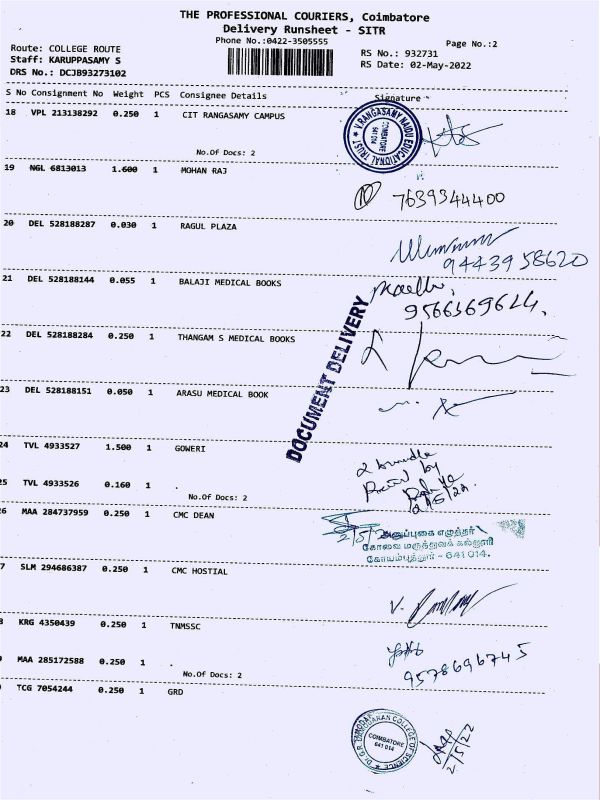 THE PROFESSIONAL COURIERS, Coimbatore
Delivery Runsheet - SITR
Phone No.:0422-3505555
Page No.:2
Route: COLLEGE ROUTE
Staff: KARUPPASAMY S
DRS No.: DCJB93273102
RS No.: 932731
RS Date: 02-May-2022
S No Consignment No Weight PCS Consignee Details Signature
18 VPL 213138292 0.250 1 CIT RANGASAMY CAMPUS
No.Of Docs: 2
V.RANGASAMY NAIDU EDUCATIONAL TRUST
COIMBATORE
641 014
19 NGL 6813013 1.600 1 MOHAN RAJ
7639344400
20 DEL 528188287 0.030 1 RAGUL PLAZA
9443958620
21 DEL 528188144 0.055 1 BALAJI MEDICAL BOOKS
9566369614.
DOCUMENT DELIVERY
22 DEL 528188284 0.250 1 THANGAM S MEDICAL BOOKS
23 DEL 528188151 0.050 1 ARASU MEDICAL BOOK
24 TVL 4933527 1.500 1 GOWERI
2 bundle
by
2/5/22
25 TVL 4933526 0.160 1 .
No.Of Docs: 2
6 MAA 284737959 0.250 1 CMC DEAN
2/5/
அனுப்புகை எழுத்தர்
கோவை மருத்துவக் கல்லூரி
கோயம்புத்தூர் - 641 014.
7 SLM 294686387 0.250 1 CMC HOSTIAL
8 KRG 4350439 0.250 1 TNMSSC
9578696745
MAA 285172588 0.250 1 .
No.Of Docs: 2
TCG 7054244 0.250 1 GRD
Dr.G.R.DAMODARAN COLLEGE OF SCIENCE
COIMBATORE
641 014
2/5/22